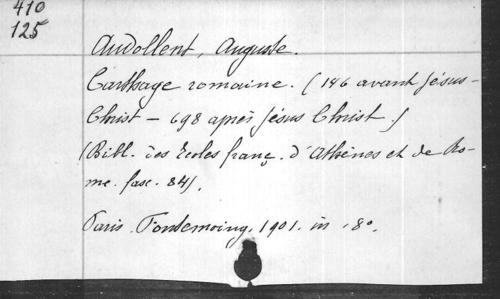 410
125
Audollent, Auguste.
Carthage romaine. (146 avant Jésus-
Christ – 698 après Jésus Christ.)
(Bibl. des Ecoles franç. d'Athènes et de Ro-
me. fasc. 84).
Paris. Fontemoing, 1901. in 8º.